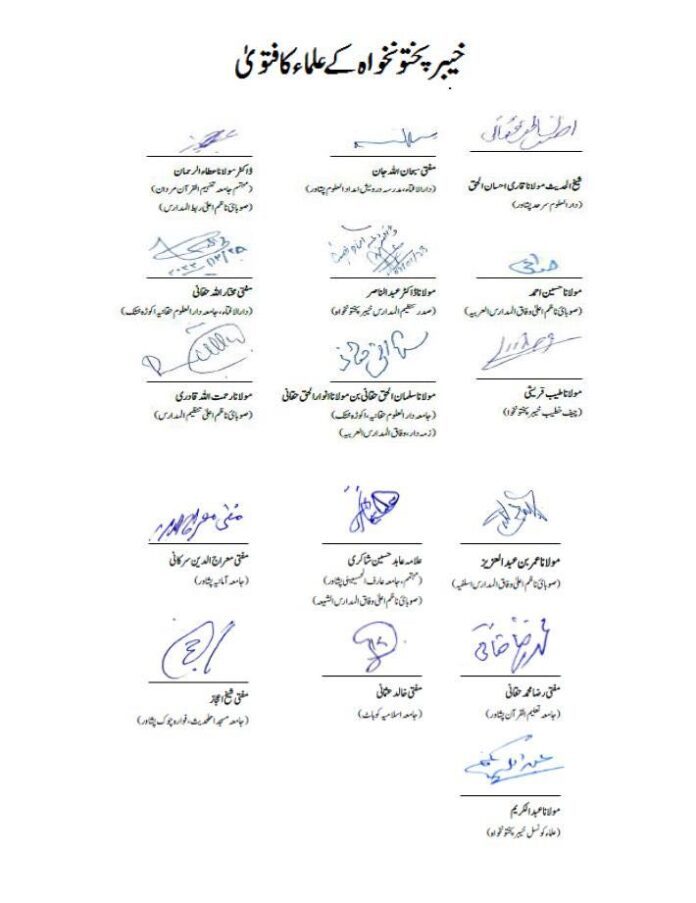 خیبر پختونخواہ کے علماء کا فتویٰ
شیخ الحدیث مولانا قاری احسان الحق
(دارالعلوم سرحد پشاور)
مفتی سبحان اللہ جان
(دارالافتاء، مدرسہ درویش امداد العلوم پشاور)
ڈاکٹر مولانا عطاء الرحمان
(مہتمم جامعہ تفہیم القرآن مردان)
(صوبائی ناظم اعلیٰ رابطۃ المدارس)
مولانا حسین احمد
(صوبائی ناظم اعلیٰ وفاق المدارس العربیہ)
مولانا ڈاکٹر عبد الناصر
(صدر تنظیم المدارس خیبر پختونخواہ)
مفتی مختار اللہ حقانی
(دارالافتاء، جامعہ دارالعلوم حقانیہ اکوڑہ خٹک)
مولانا طیب قریشی
(چیف خطیب خیبر پختونخوا)
مولانا سلمان الحق حقانی بن مولانا انوار الحق حقانی
(جامعہ دارالعلوم حقانیہ، اکوڑہ خٹک)
(ذمہ دار، وفاق المدارس العربیہ)
مولانا رحمت اللہ قادری
(صوبائی ناظم اعلیٰ تنظیم المدارس)
مولانا عمر بن عبد العزیز
(صوبائی ناظم اعلیٰ وفاق المدارس السلفیہ)
علامہ عابد حسین شاکری
(مہتمم، جامعہ عارف الحسینی پشاور)
(صوبائی ناظم اعلیٰ وفاق المدارس الشیعہ)
مفتی معراج الدین سرکانی
(جامعہ آمانیہ پشاور)
مفتی رضا محمد حقانی
(جامعہ تعلیم القرآن پشاور)
مفتی خالد عثمانی
(جامعہ اسلامیہ کوہاٹ)
مفتی شیخ اعجاز
(جامعہ مسجد اہلحدیث، فوارہ چوک پشاور)
مولانا عبد الکریم
(علماء کونسل خیبر پختونخواہ)